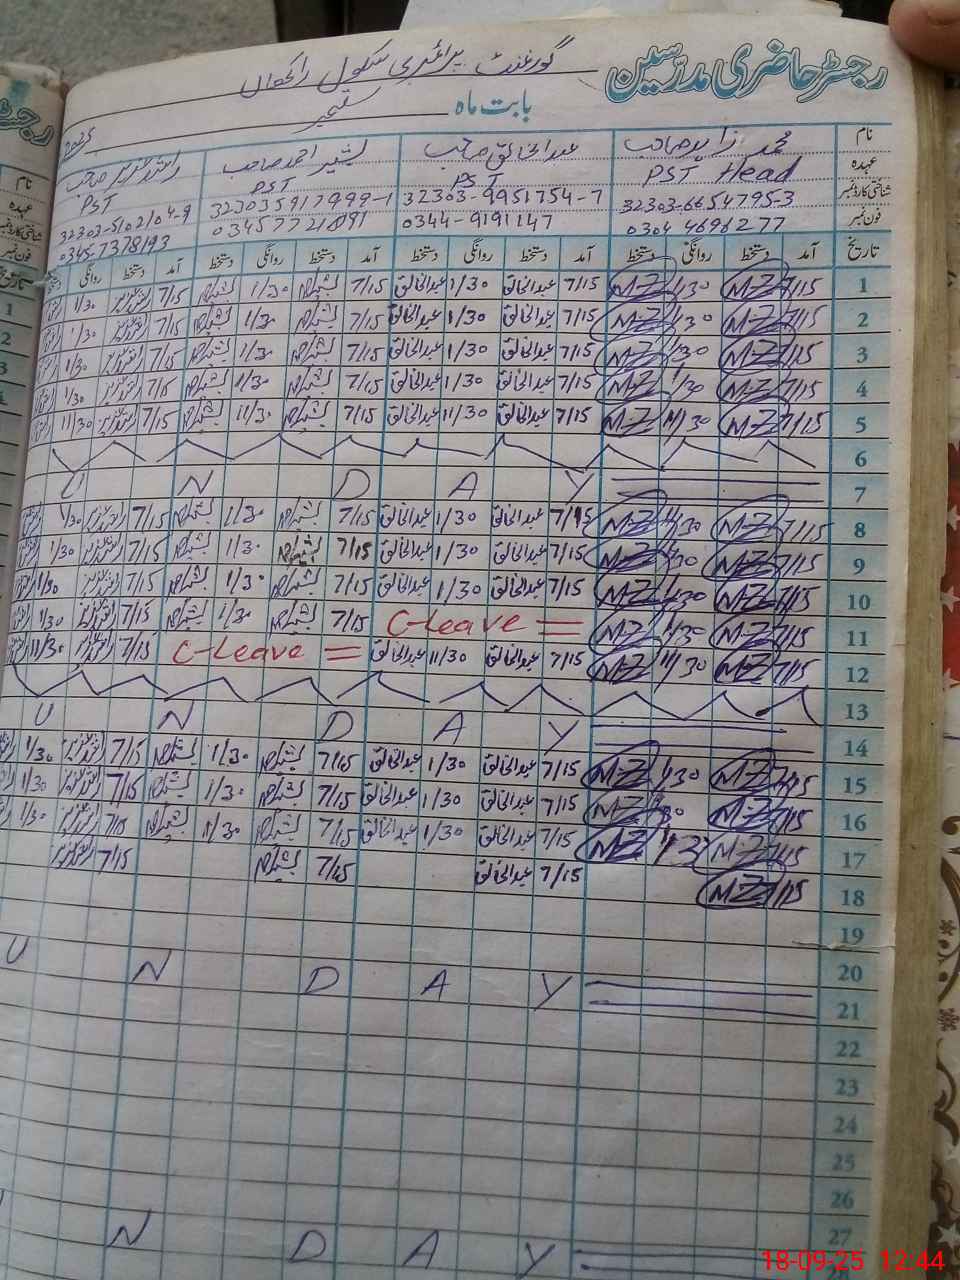 رجسٹر حاضری مدرسین گورنمنٹ پرائمری سکول
بابت ماہ ستمبر 2025
نام محمد زاہد صاحب عبدالخالق صاحب بشیر احمد صاحب صاحب
عہدہ PST Head PST PST PST
شناختی کارڈ نمبر 32303-6654795-3 32303-9951754-7 32303-5102104-9
فون نمبر 0304 4696277 0344-9191147 03457721891 0345-7378193
تاریخ آمد دستخط روانگی دستخط آمد دستخط روانگی دستخط آمد دستخط روانگی دستخط آمد دستخط روانگی
1 7/15 M-Z 1/30 M-Z 7/15 عبدالخالق 1/30 عبدالخالق 7/15 بشیراحمد 1/30 بشیراحمد 7/15 1/30
2 7/15 M-Z 1/30 M-Z 7/15 عبدالخالق 1/30 عبدالخالق 7/15 بشیراحمد 1/30 بشیراحمد 7/15 1/30
3 7/15 M-Z 1/30 M-Z 7/15 عبدالخالق 1/30 عبدالخالق 7/15 بشیراحمد 1/30 بشیراحمد 7/15 1/30
4 7/15 M-Z 1/30 M-Z 7/15 عبدالخالق 1/30 عبدالخالق 7/15 بشیراحمد 1/30 بشیراحمد 7/15 1/30
5 7/15 M-Z 11/30 M-Z 7/15 عبدالخالق 11/30 عبدالخالق 7/15 بشیراحمد 11/30 بشیراحمد 7/15 11/30
6
7 U N D A Y
8 7/15 M-Z 1/30 M-Z 7/15 عبدالخالق 1/30 عبدالخالق 7/15 بشیراحمد 1/30 بشیراحمد 7/15 1/30
9 7/15 M-Z 1/30 M-Z 7/15 عبدالخالق 1/30 عبدالخالق 7/15 بشیراحمد 1/30 بشیراحمد 7/15 1/30
10 7/15 M-Z 1/30 M-Z 7/15 عبدالخالق 1/30 عبدالخالق 7/15 بشیراحمد 1/30 بشیراحمد 7/15 1/30
11 7/15 M-Z 1/30 M-Z C-Leave = 7/15 بشیراحمد 1/30 بشیراحمد 7/15 1/30
12 7/15 M-Z 11/30 M-Z 7/15 عبدالخالق 11/30 عبدالخالق C-Leave = 7/15 11/30
13
14 U N D A Y
15 7/15 M-Z 1/30 M-Z 7/15 عبدالخالق 1/30 عبدالخالق 7/15 بشیراحمد 1/30 بشیراحمد 7/15 1/30
16 7/15 M-Z 1/30 M-Z 7/15 عبدالخالق 1/30 عبدالخالق 7/15 بشیراحمد 1/30 بشیراحمد 7/15 1/30
17 7/15 M-Z 1/30 M-Z 7/15 عبدالخالق 1/30 عبدالخالق 7/15 بشیراحمد 1/30 بشیراحمد 7/15 1/30
18 7/15 M-Z 7/15 عبدالخالق 7/15 بشیراحمد 7/15
19
20
21 U N D A Y
22
23
24
25
26
27
N D A Y
18-09-25 12:44